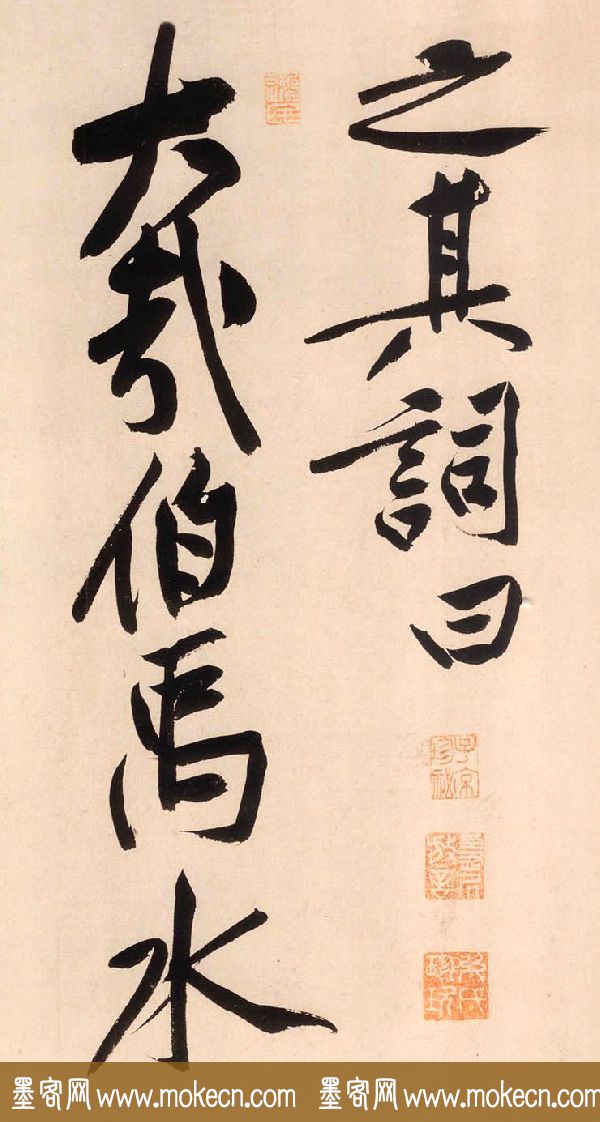 之其詞曰
大羲伯禹水
墨客网 www.mokecn.com 墨客网 www.mokecn.com